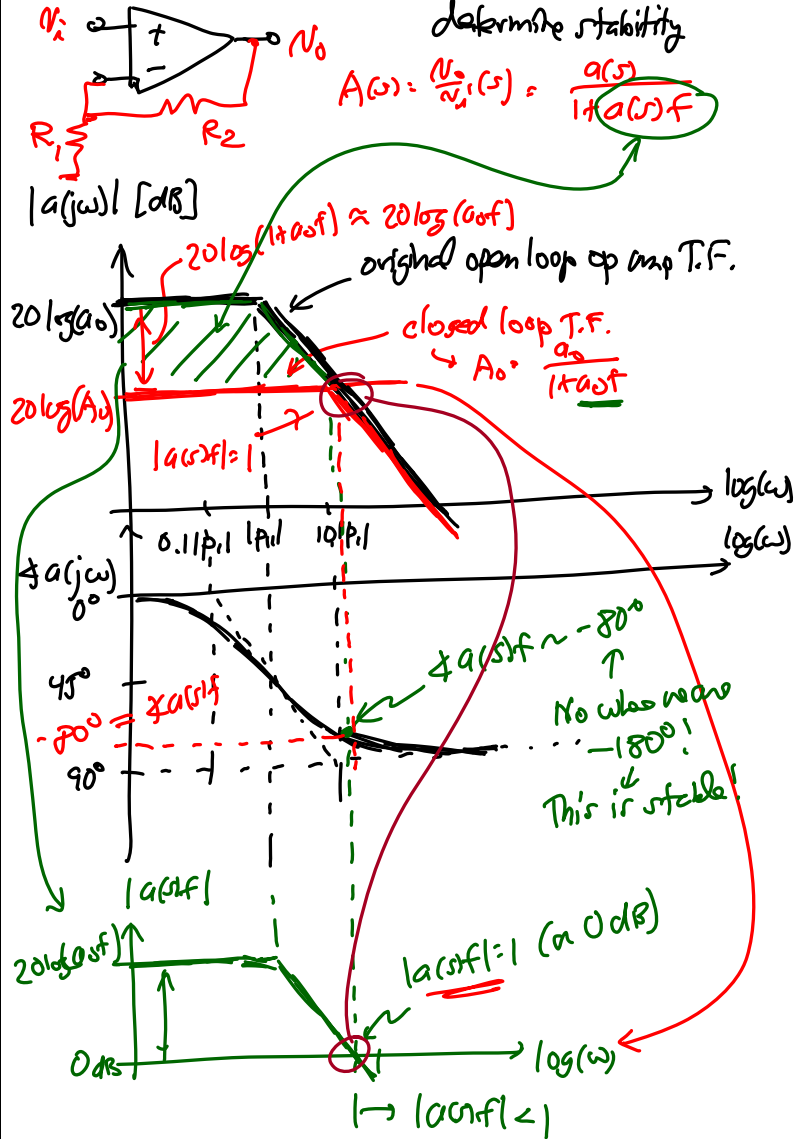 determine stability
Vi
+
-
Vo
R1
R2
A(s) = Vo/Vi (s) = a(s) / 1+a(s)f
|a(jω)| [dB]
20log(1+a0f) ≈ 20log(a0f)
original open loop op amp T.F.
20log(a0)
closed loop T.F.
↳ A0 = a0 / 1+a0f
20log(A0)
|a(s)f|=1
log(ω)
0.1|p1|
|p1|
10|p1|
log(ω)
∡a(jω)
0°
45°
-80° = ∡a(s)f
90°
∡a(s)f ~ -80°
↑
No where near
-180°!
This is stable!
|a(s)f|
20log(a0f)
|a(s)f|=1 (a 0dB)
0dB
log(ω)
|→ |a(s)f| < 1